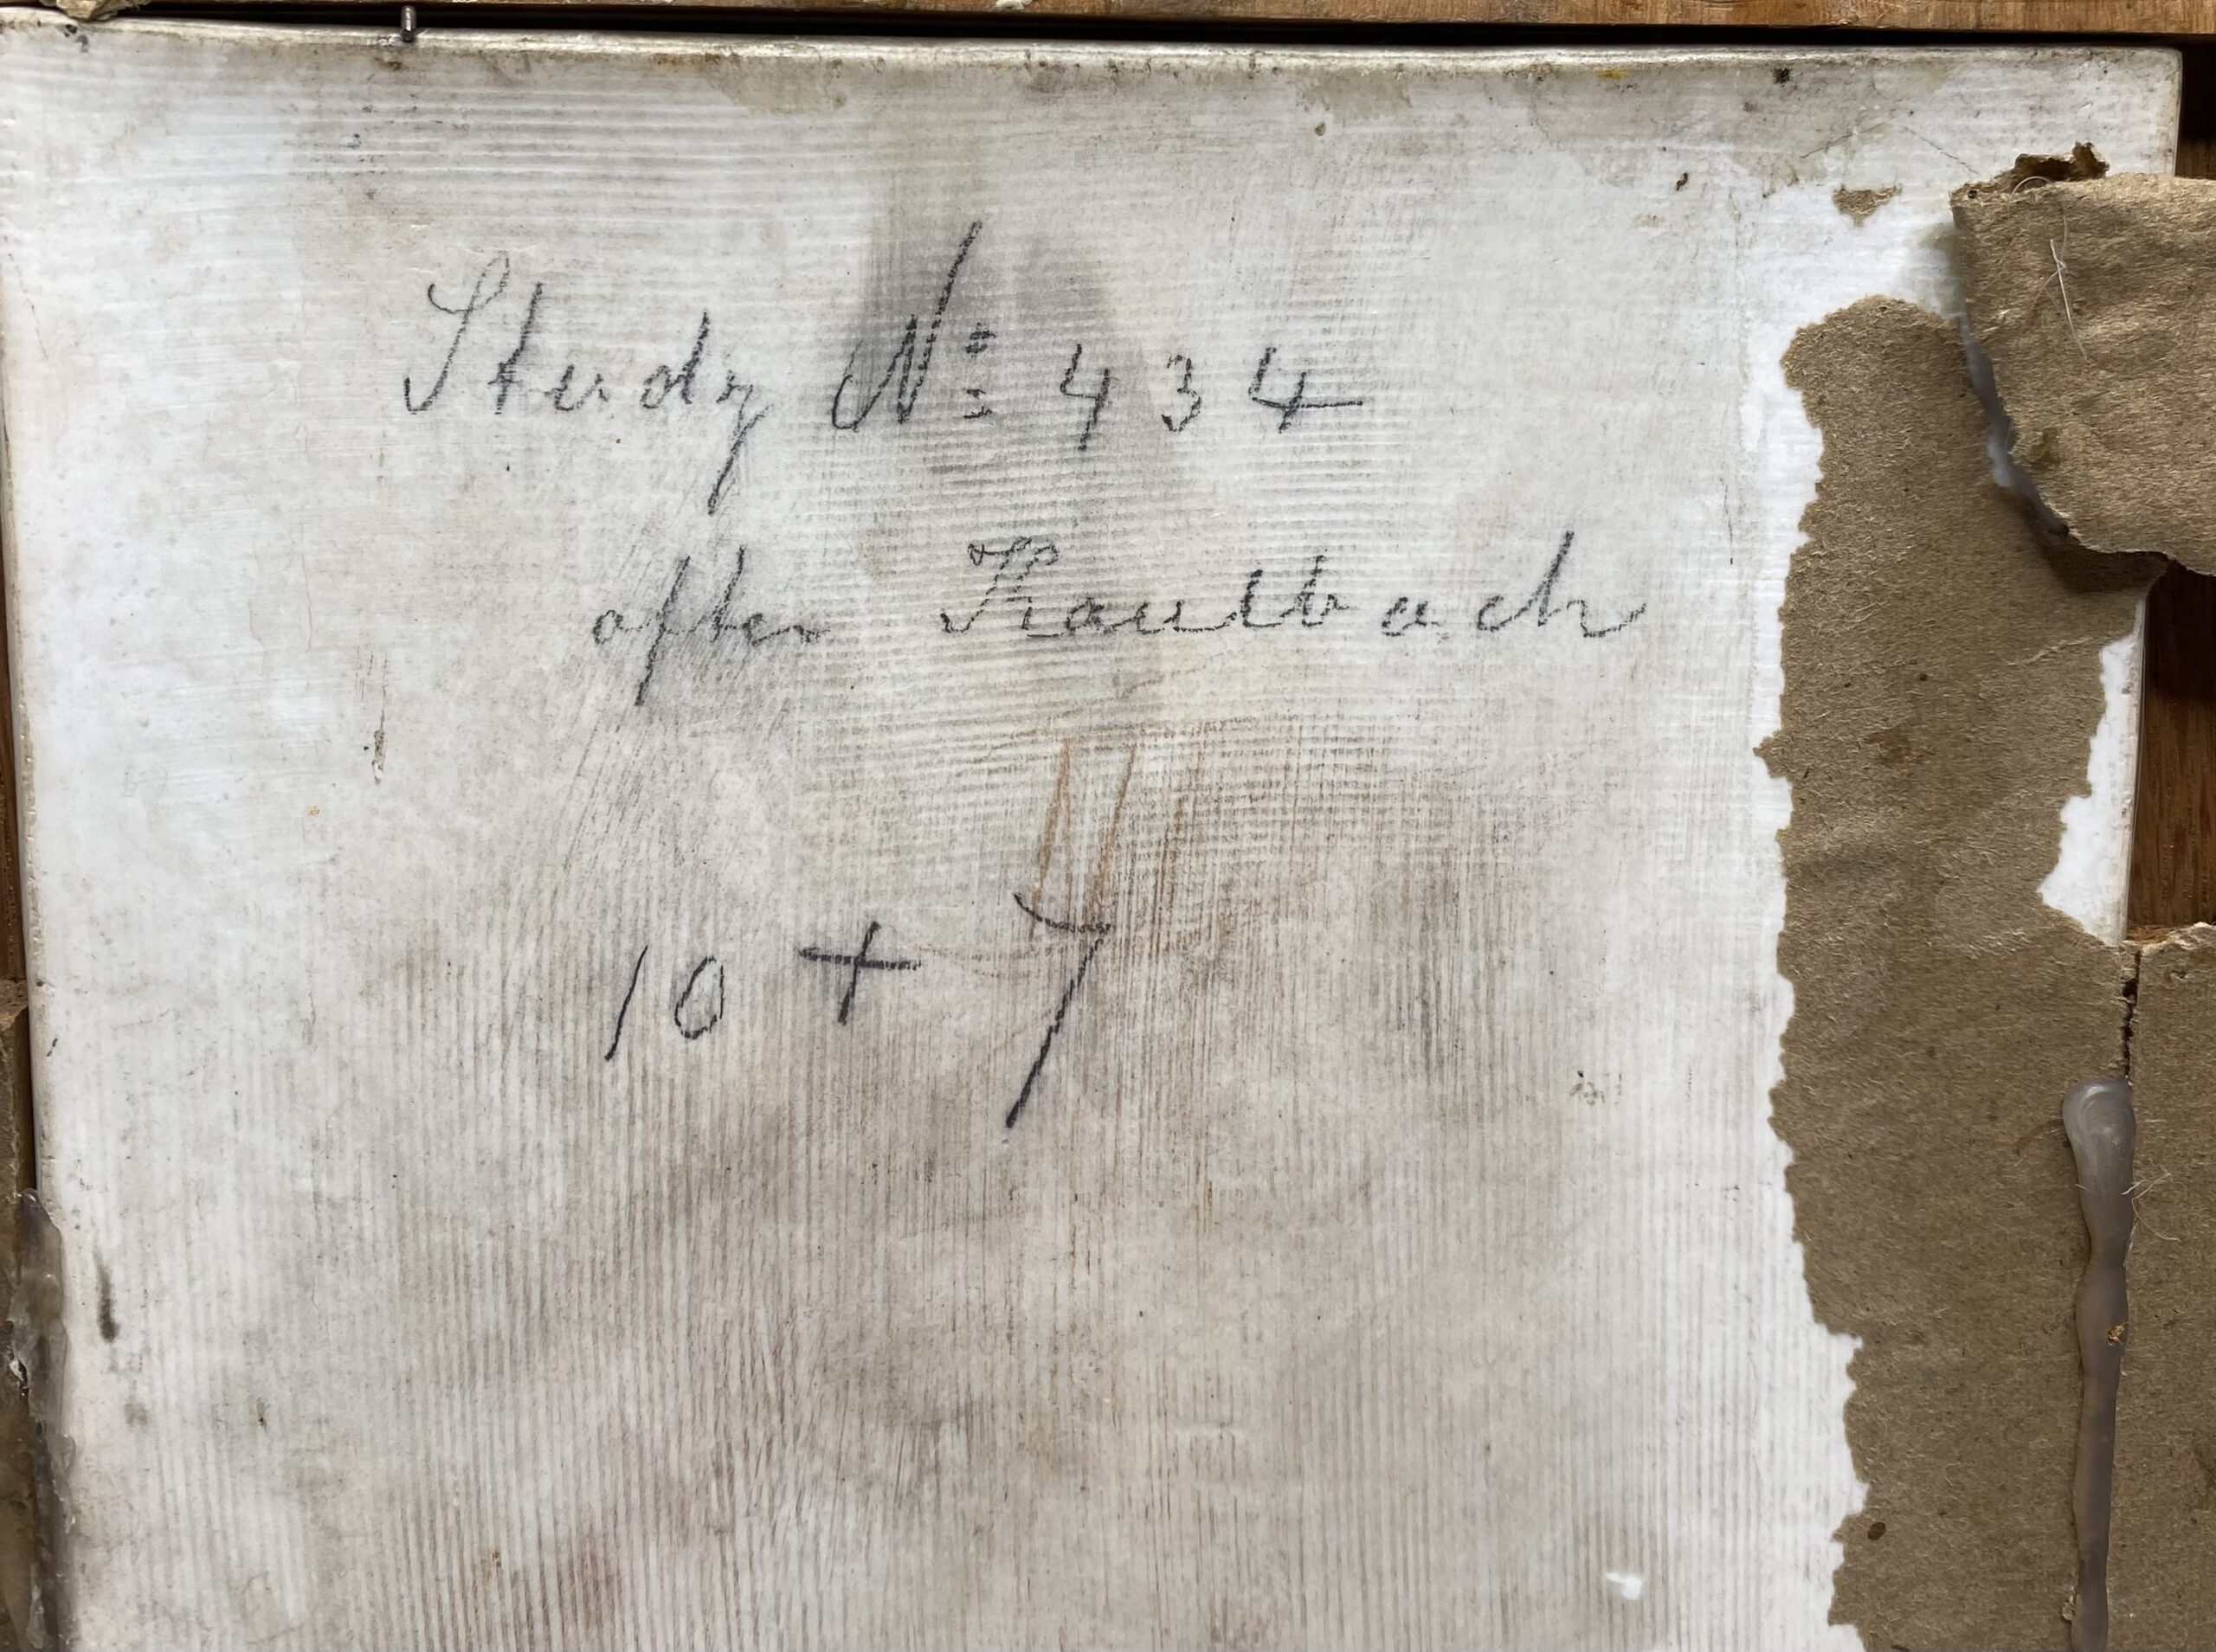 Study No: 434
after Kaulbach
10 + 7